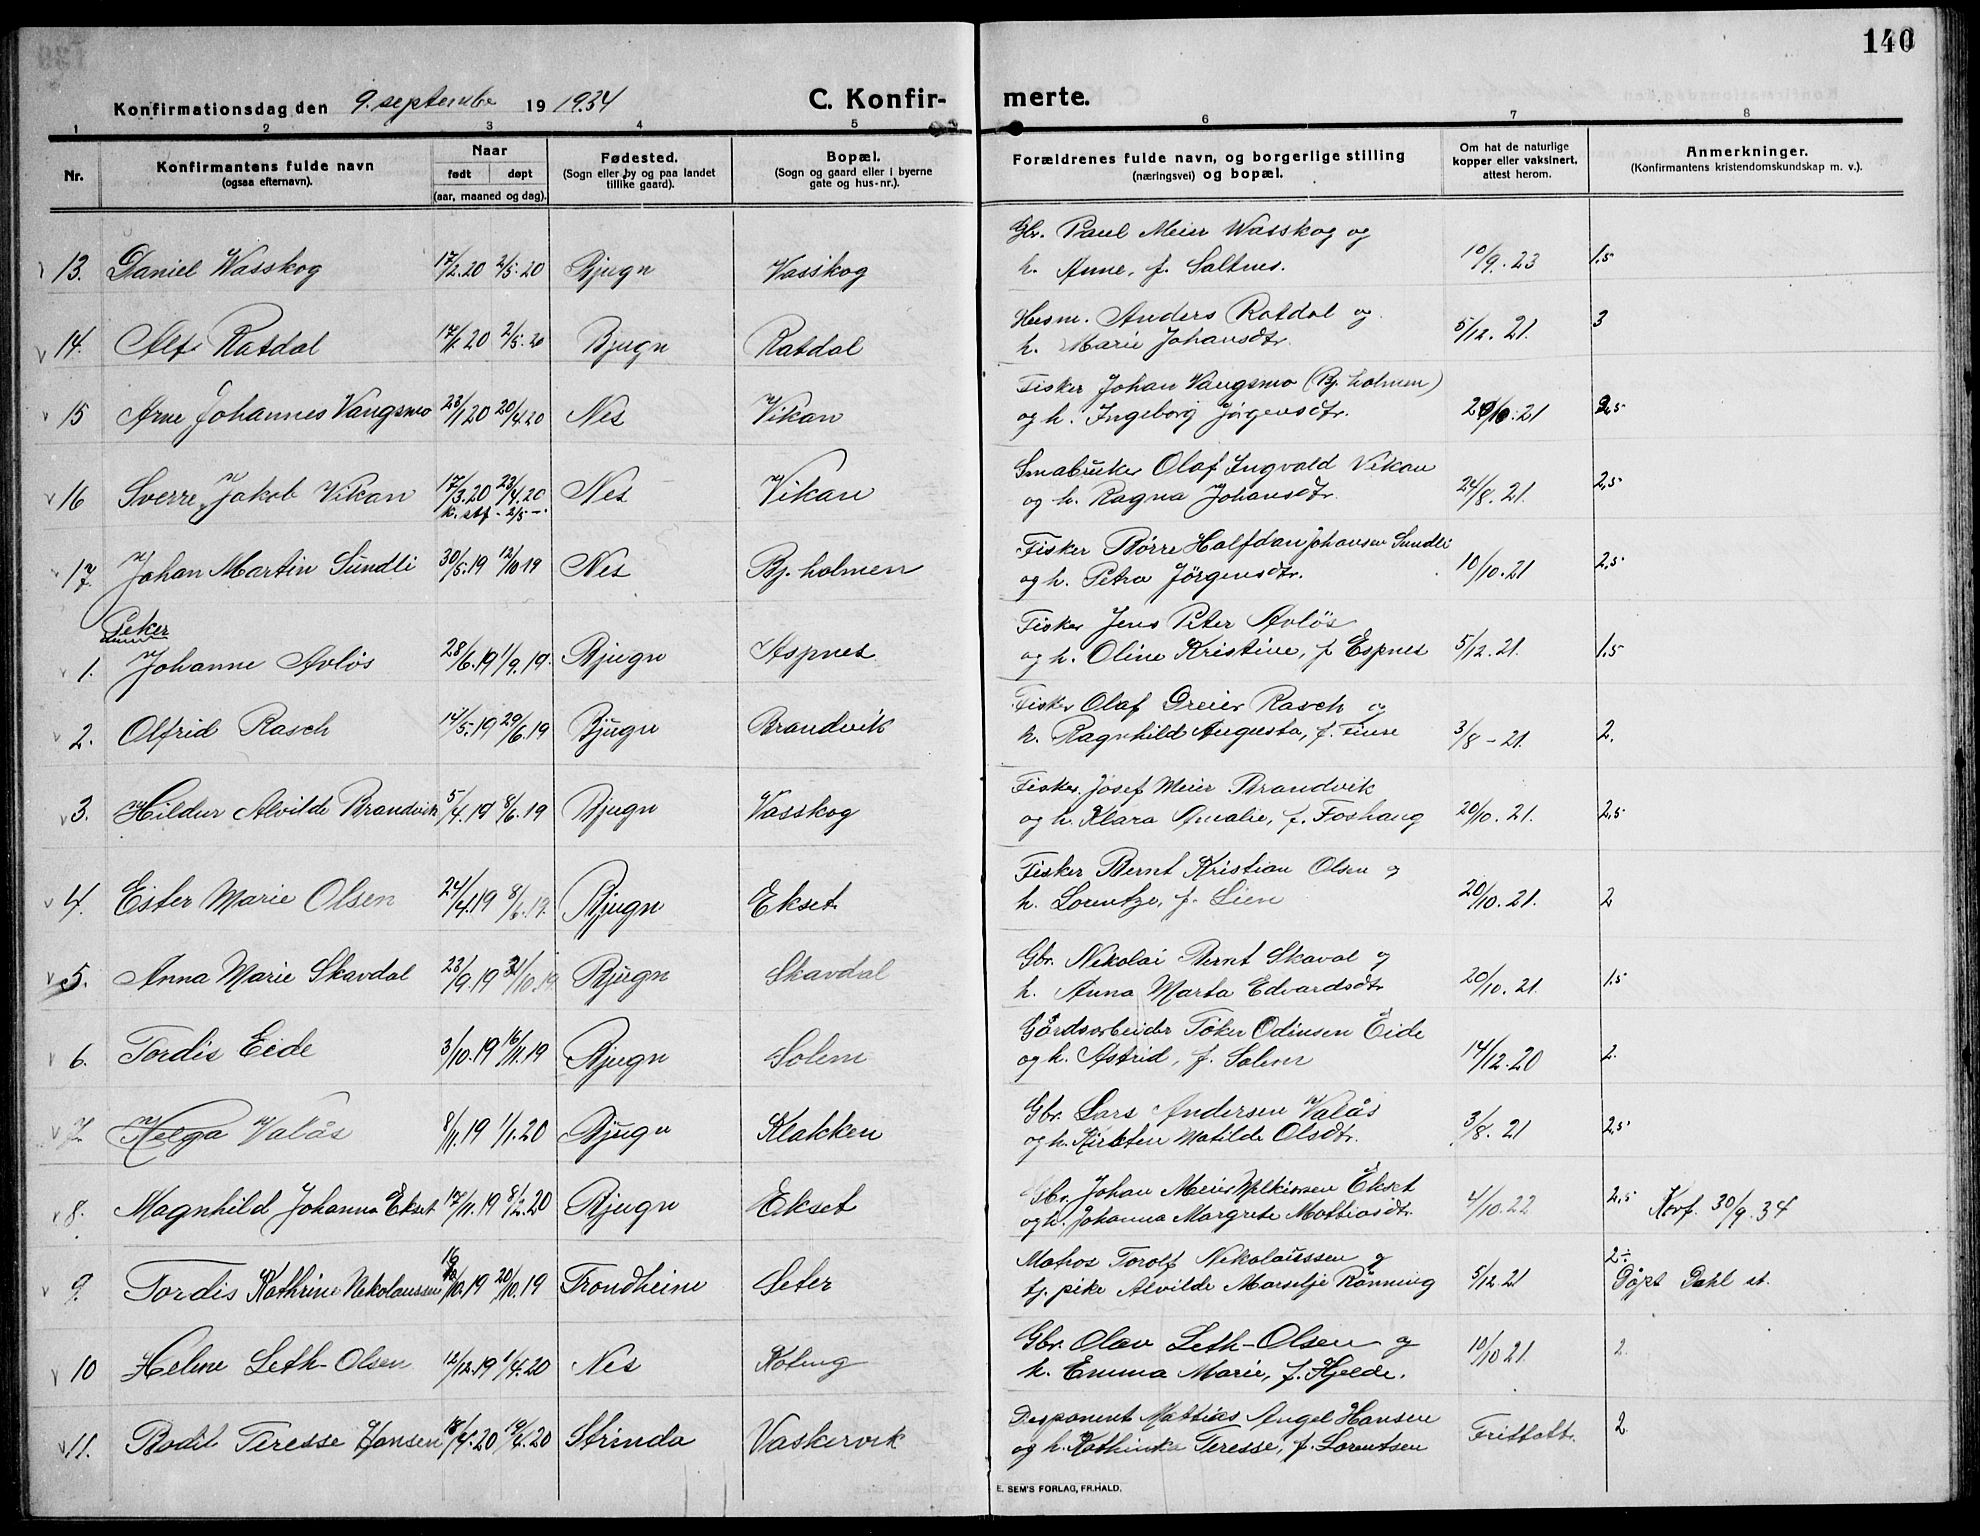 140
Konfirmationsdag den 9. september 19 1934 C. Konfir- merte.
1 2 3 4 5 6 7 8
Nr. Konfirmantens fulde navn (ogsaa efternavn). Naar født døpt (aar, maaned og dag). Fødested. (Sogn eller by og paa landet tillike gaard). Bopæl. (Sogn og gaard eller i byerne gate og hus-nr.). Forældrenes fulde navn, og borgerlige stilling (næringsvei) og bopæl. Om hat de naturlige kopper eller vaksinert, attest herom. Anmerkninger. (Konfirmantens kristendomskundskap m. v.).
13. Daniel Wasskog 17/2.20 2/5.20 Bjugn Vasskog Gbr. Paul Meier Wasskog og
h. Anne, f. Saltnes. 10/9.23 1,5
14. Alf Ratdal 17/1.20 2/5.20 Bjugn Ratdal Husm. Anders Ratdal og
h. Marie Johansdtr. 5/12.21. 3
15 Arne Johannes Vangsmo 23/1.20 20/4.20 Nes Vikan Fisker Johan Vangsmo (Bj. holmen)
og h. Ingeborg Jörgensdtr. 10.21 2,5
16 Sverre Jakob Vikan 17/3.20 23/4.20 Nes Vikan Småbruker Olaf Ingvald Vikan
k. stf. 2/5 og h. Ragna Johansdtr. 24/8.21. 2,5
17. Johan Martin Sundli 30/5.19 12/10 19 Nes Bj. holmen Fisker Børre Halfdan Johansen Sundli
og h. Petra Jørgensdtr. 10/10.21 2,5
Piker
1. Johanne Avløs 28/6.19 1/9.19. Bjugn Aspnes Fisker Jens Peter Avløs
og h. Oline Kristine, f. Espnes 5/12.21. 1,5
2. Olfrid Rasch 14/5.19 29/6.19 Bjugn Brandvik Fisker Olaf Dreier Rasch og
h. Ragnhild Augusta, f. 3/8-21. 2.
3. Hildur Alvilde Brandvik 5/4.19 8/6.19 Bjugn Vasskog Fisker Josef Meier Brandvik
og h. Klara Amalie, f. Foshaug 20/10.21. 2,5
4. Ester Marie Olsen 24/4.19 8/6.19. Bjugn Ekset Fisker Bernt Kristian Olsen og
h. Lorentze, f. Lien 20/10.21. 2
5. Anna Marie Skavdal 23/9.19 /10.19 Bjugn Skavdal Gbr. Nikolai Bernt Skavdal og
h. Anna Marta Edvardsdtr 20/10.21. 1.5
6. Tordis Eide 3/10.19 16/11.19 Bjugn Solem Gårdsarbeider Töker Odinsen Eide
og h. Astrid, f. Solem 14/12.20 2.
7. Helga Valås 8/11.19 1/1.20 Bjugn Klakken Gbr. Lars Andersen Valås
og h. Kirsten Matilde Olsdtr. 3/8.21 2,5
8. Magnhild Johanna Ekset 17/11.19 8/2.20 Bjugn Ekset Gbr. Johan Meier Melkiorsen Ekset
og h. Johanna Margrete Mattiasdtr. 4/10.22 2,5 Konf. 30/9.34
9. Tordis Kathrine Nikolaussen 16/10.19 20/10.19 Trondheim Seter Matros Torolf Nikolaussen og
tj. pike Alvilde Marselje Rønning 5/12.21 2÷ Döpt Dahl st.
10 Helene Leth-Olsen 12/12.19 1/4.20 Nes Koteng Gbr. Olav Leth-Olsen og
h. Emma Marie, f. Hjelde. 10/10 21. 2.
11. Bodil Teresse Hansen 18/4.20 19/4.20 Strinda Vaskervik Disponent Mattias Angel Hansen
og h. Kathinka Teresse, f. Lorentsen Frittatt. 2
E. SEM'S FORLAG, FR.HALD.